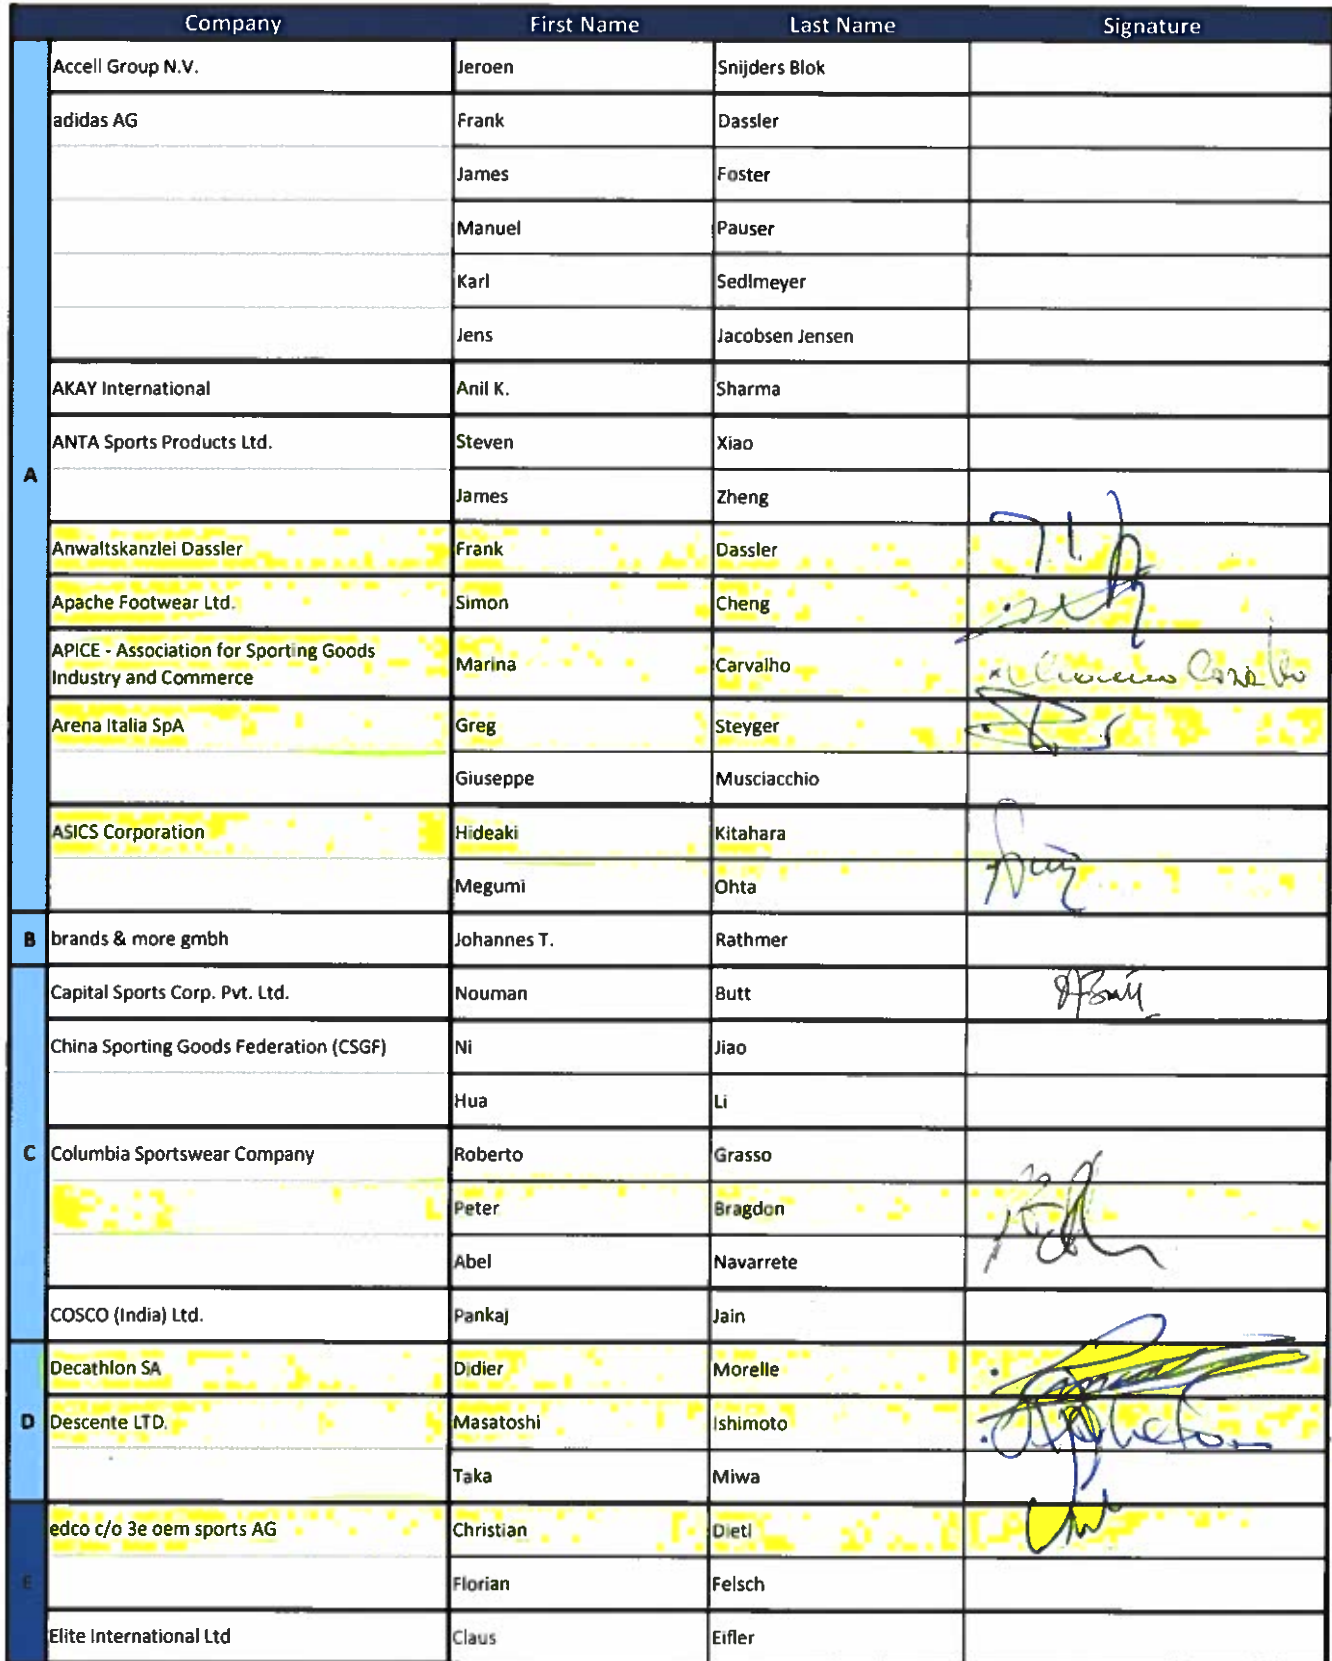 Company First Name Last Name Signature
Accell Group N.V. Jeroen Snijders Blok
adidas AG Frank Dassler
James Foster
Manuel Pauser
Karl Sedlmeyer
Jens Jacobsen Jensen
AKAY International Anil K. Sharma
ANTA Sports Products Ltd. Steven Xiao
A
James Zheng
Anwaltskanzlei Dassler Frank Dassler
Apache Footwear Ltd. Simon Cheng
APICE - Association for Sporting Goods
Industry and Commerce Marina Carvalho
Arena Italia SpA Greg Steyger
Giuseppe Musciacchio
ASICS Corporation Hideaki Kitahara
Megumi Ohta
B brands & more gmbh Johannes T. Rathmer
Capital Sports Corp. Pvt. Ltd. Nouman Butt
China Sporting Goods Federation (CSGF) Ni Jiao
Hua Li
C Columbia Sportswear Company Roberto Grasso
Peter Bragdon
Abel Navarrete
COSCO (India) Ltd. Pankaj Jain
Decathlon SA Didier Morelle
D Descente LTD. Masatoshi Ishimoto
Taka Miwa
edco c/o 3e oem sports AG Christian Dietl
E Florian Felsch
Elite International Ltd Claus Eifler